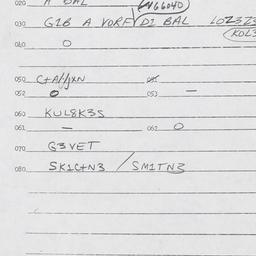 020 A BAL N6604D
030 G2B A VORF/DI BAL LOZ3Z
KOL3
040 O
050 C+A//JXN 051
052 O 053 —
060 KUL8K3S
061 — 062 O
070 G3VET
080 SK1C+N3 / SM1TN3